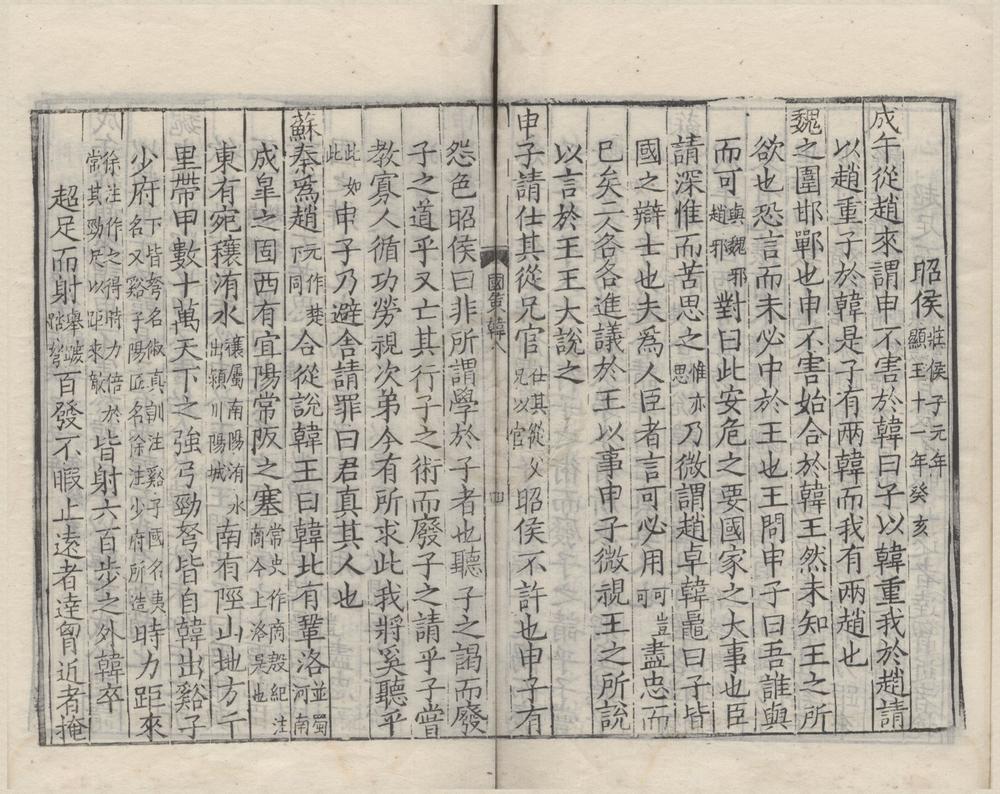 昭侯莊侯子元年顯王十一年癸亥
成午從趙來謂申不害於韓曰子以韓重我於趙請
以趙重子於韓是子有兩韓而我有兩趙也
魏之圍邯鄲也申不害始合於韓王然未知王之所
欲也恐言而未必中於王也王問申子曰吾誰與
而可與魏邪趙邪對曰此安危之要國家之大事也臣
請深惟而苦思之惟亦思乃微謂趙卓韓鼂曰子皆
國之辯士也夫為人臣者言可必用豈可可盡忠而
已矣二人各各進議於王以事申子微視王之所說
以言於王王大說之
申子請仕其從兄官仕其從父兄以官昭侯不許也申子有
國策韓八
四
怨色昭侯曰非所謂學於子者也聽子之謁而廢
子之道乎又亡其行子之術而廢子之請乎子嘗
教寡人循功勞視次弟今有所求此我將奚聽乎
此如此申子乃避舍請罪曰君真其人也
蘇秦為趙元作楚下同合從說韓王曰韓北有鞏洛並蜀河南
成皐之固西有宜陽常阪之塞常史作商殽紀注商今上洛吴也
東有宛穰洧水穰屬南陽洧水出潁川陽城南有陘山地方千
里帶甲數十萬天下之強弓勁弩皆自韓出谿子
少府下皆弩名俶真訓注谿子國名夷名又谿子陽匠名徐注少府所造時力距來
徐注作之得時力倍於常其勁足以距來敵皆射六百步之外韓卒
超足而射舉跛踏弩百發不暇止遠者達胷近者掩